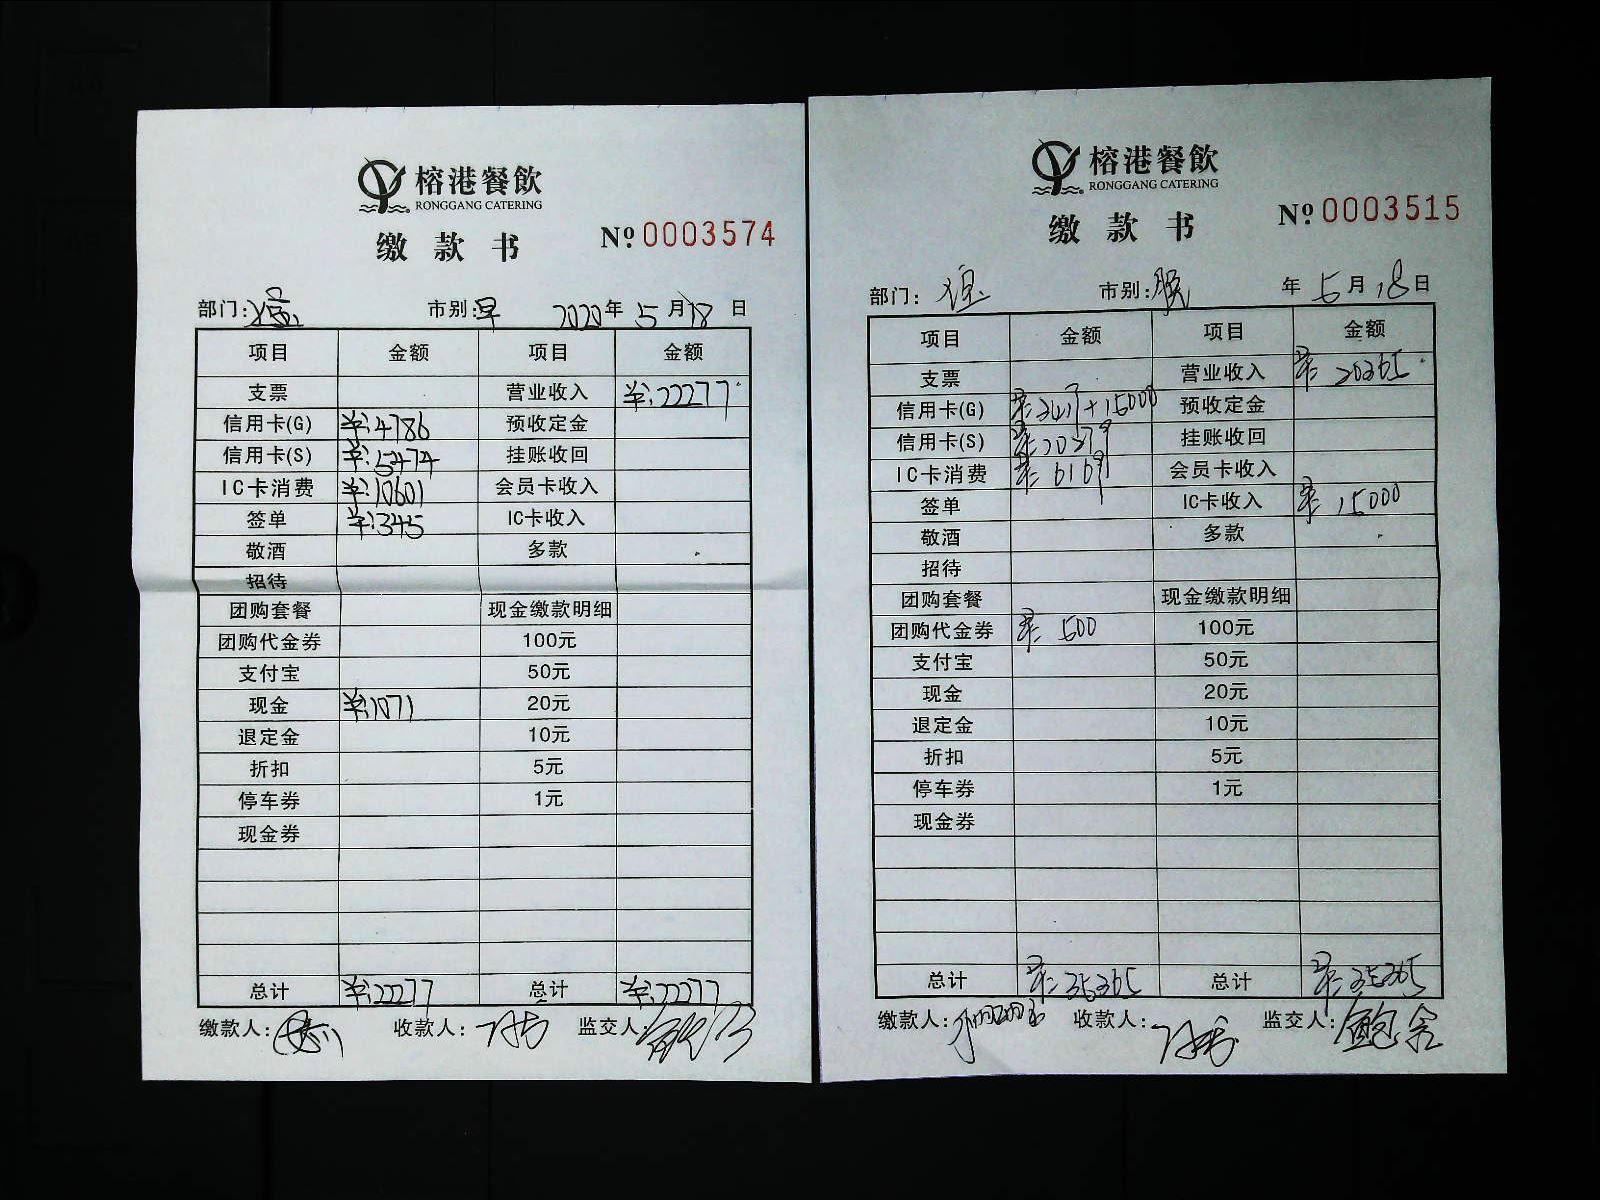 榕港餐飲
RONGGANG CATERING
缴款书
№ 0003574
部门: 市别:早 2020年5月18日
项目 金额 项目 金额
支票 营业收入 ¥:22277
信用卡(G) ¥:4786 预收定金
信用卡(S) ¥:5474 挂账收回
IC卡消费 ¥:10601 会员卡收入
签单 ¥:345 IC卡收入
敬酒 多款
招待
团购套餐 现金缴款明细
团购代金券 100元
支付宝 50元
现金 ¥:1071 20元
退定金 10元
折扣 5元
停车券 1元
现金券
总计 ¥:22277 总计 ¥:22277
缴款人: 收款人: 监交人:
榕港餐飲
RONGGANG CATERING
缴款书
№ 0003515
部门: 市别:晚 年5月18日
项目 金额 项目 金额
支票 营业收入 ¥:20365
信用卡(G) +15000 预收定金
信用卡(S) 挂账收回
IC卡消费 ¥:6169 会员卡收入
签单 IC卡收入 ¥:15000
敬酒 多款
招待
团购套餐 现金缴款明细
团购代金券 ¥:500 100元
支付宝 50元
现金 20元
退定金 10元
折扣 5元
停车券 1元
现金券
总计 ¥:35365 总计 ¥:35365
缴款人: 收款人: 监交人: